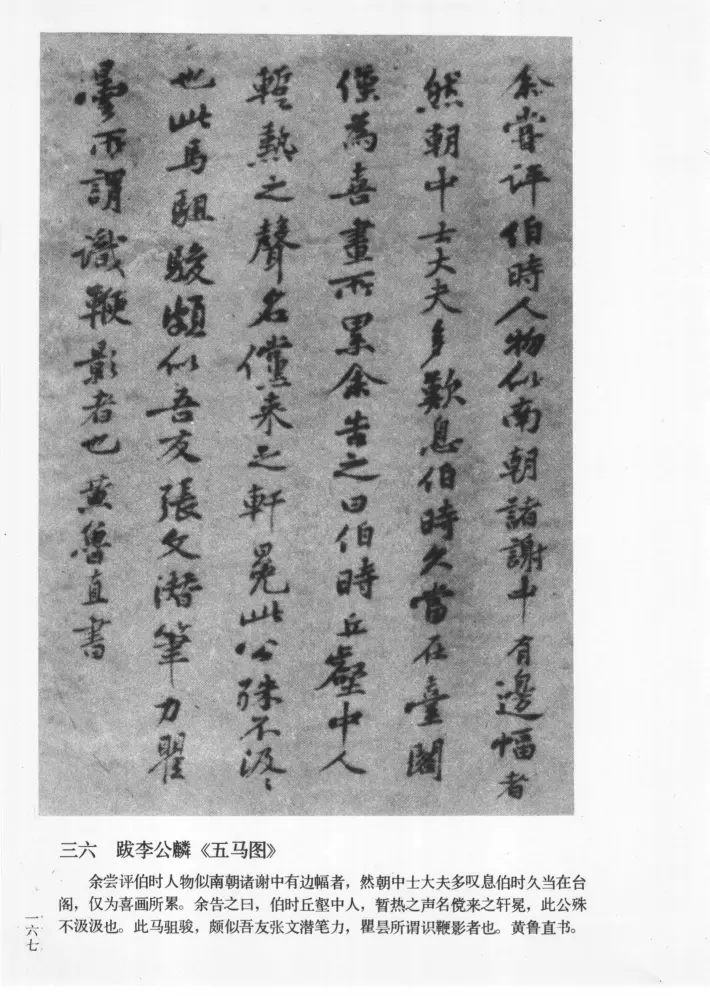 余嘗评伯時人物似南朝諸謝中有邊幅者
然朝中士大夫多歎息伯時久當在臺閣
僅為喜畫所累余告之曰伯時丘壑中人
暫熱之聲名儻来之軒冕此公殊不汲〻
也此馬駔駿頗似吾友張文潜筆力瞿
曇所謂識鞭影者也黄魯直書
三六 跋李公麟《五马图》
余尝评伯时人物似南朝诸谢中有边幅者，然朝中士大夫多叹息伯时久当在台
阁，仅为喜画所累。余告之曰，伯时丘壑中人，暂热之声名傥来之轩冕，此公殊
不汲汲也。此马驵骏，颇似吾友张文潜笔力，瞿昙所谓识鞭影者也。黄鲁直书。
一六七